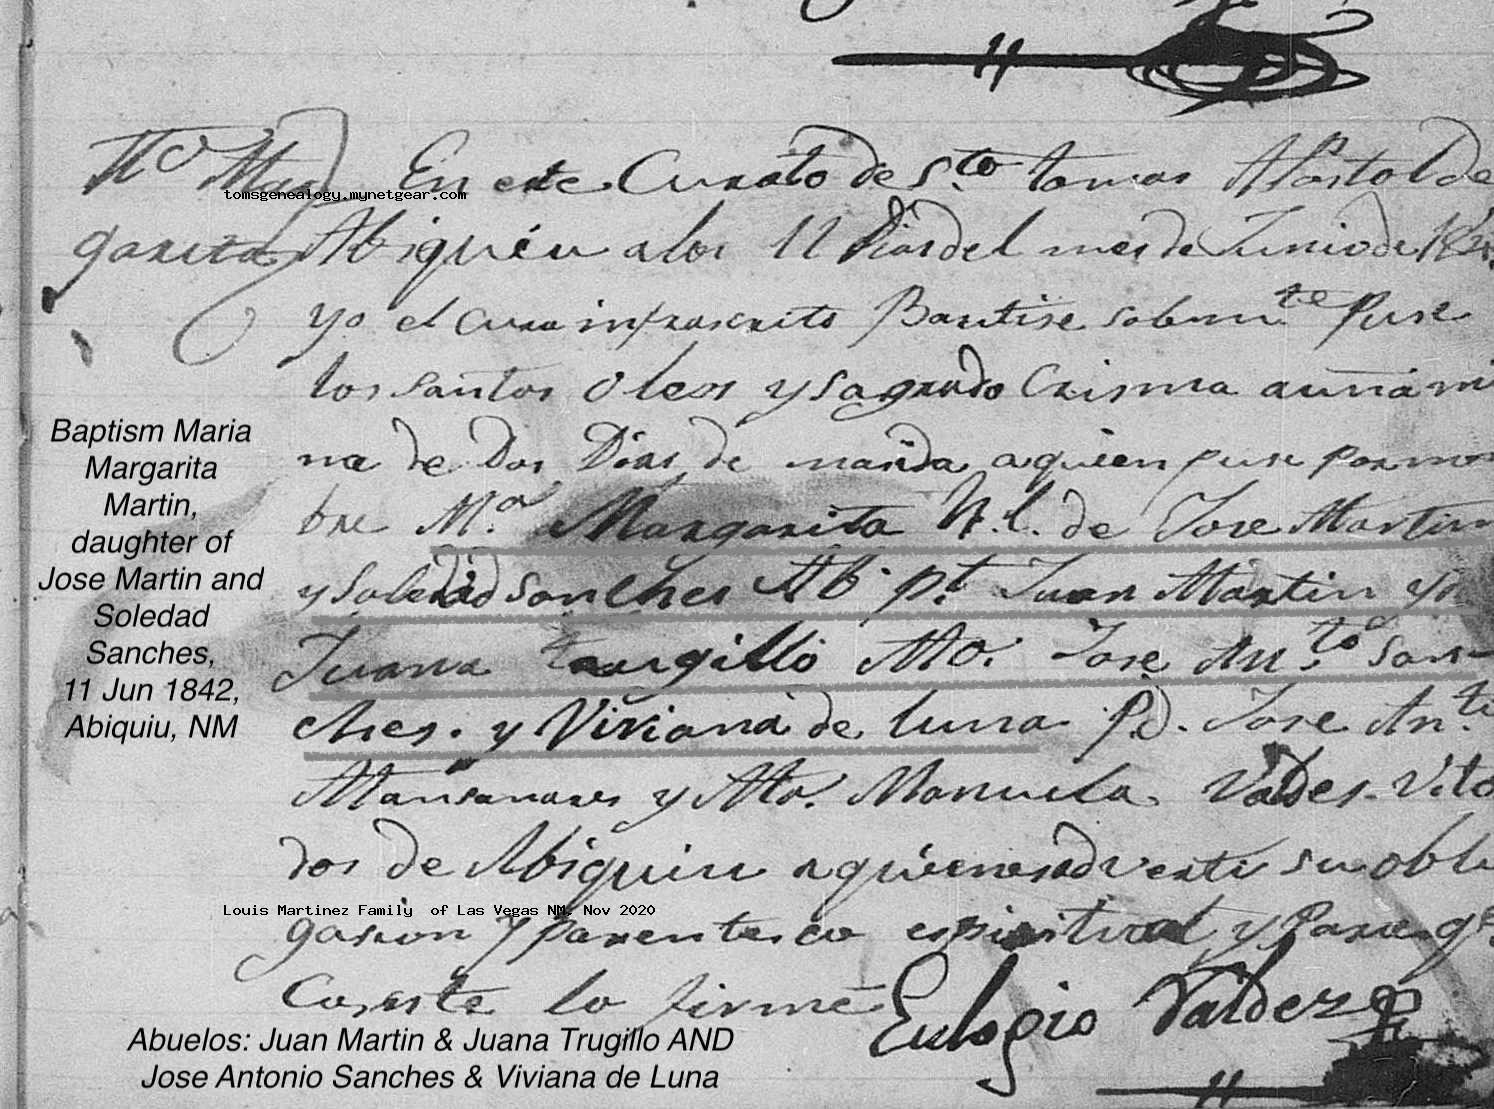 Ma. Mar
garita
En este Curato de Sto. tomas Apostol de
Abiquiu a los 11 Dias del mes de Junio de 184
yo el cura infrascrito Bautise solemte Puse
los santos oleos y sagrado Crisma a una ni
na de Dos Dias de nasida a quien puse por nom
bre Ma. Margarita h. l. de Jose Martin
y Soledad Sanches Ab. pt. Juan Martin y
Juana trugillo Mo. Jose Anto. San
ches. y Viviana de luna Pd. Jose Anto
Mansanares y Ma. Manuela Valdes. Vito
dos de Abiquiu a quienes adverti su obli
gasion y parentesco espiritual y Para qe.
Conste lo firmé Eulogio Valdez
tomsgenealogy.mynetgear.com
Baptism Maria
Margarita
Martin,
daughter of
Jose Martin and
Soledad
Sanches,
11 Jun 1842,
Abiquiu, NM
Louis Martinez Family of Las Vegas NM, Nov 2020
Abuelos: Juan Martin & Juana Trugillo AND
Jose Antonio Sanches & Viviana de Luna